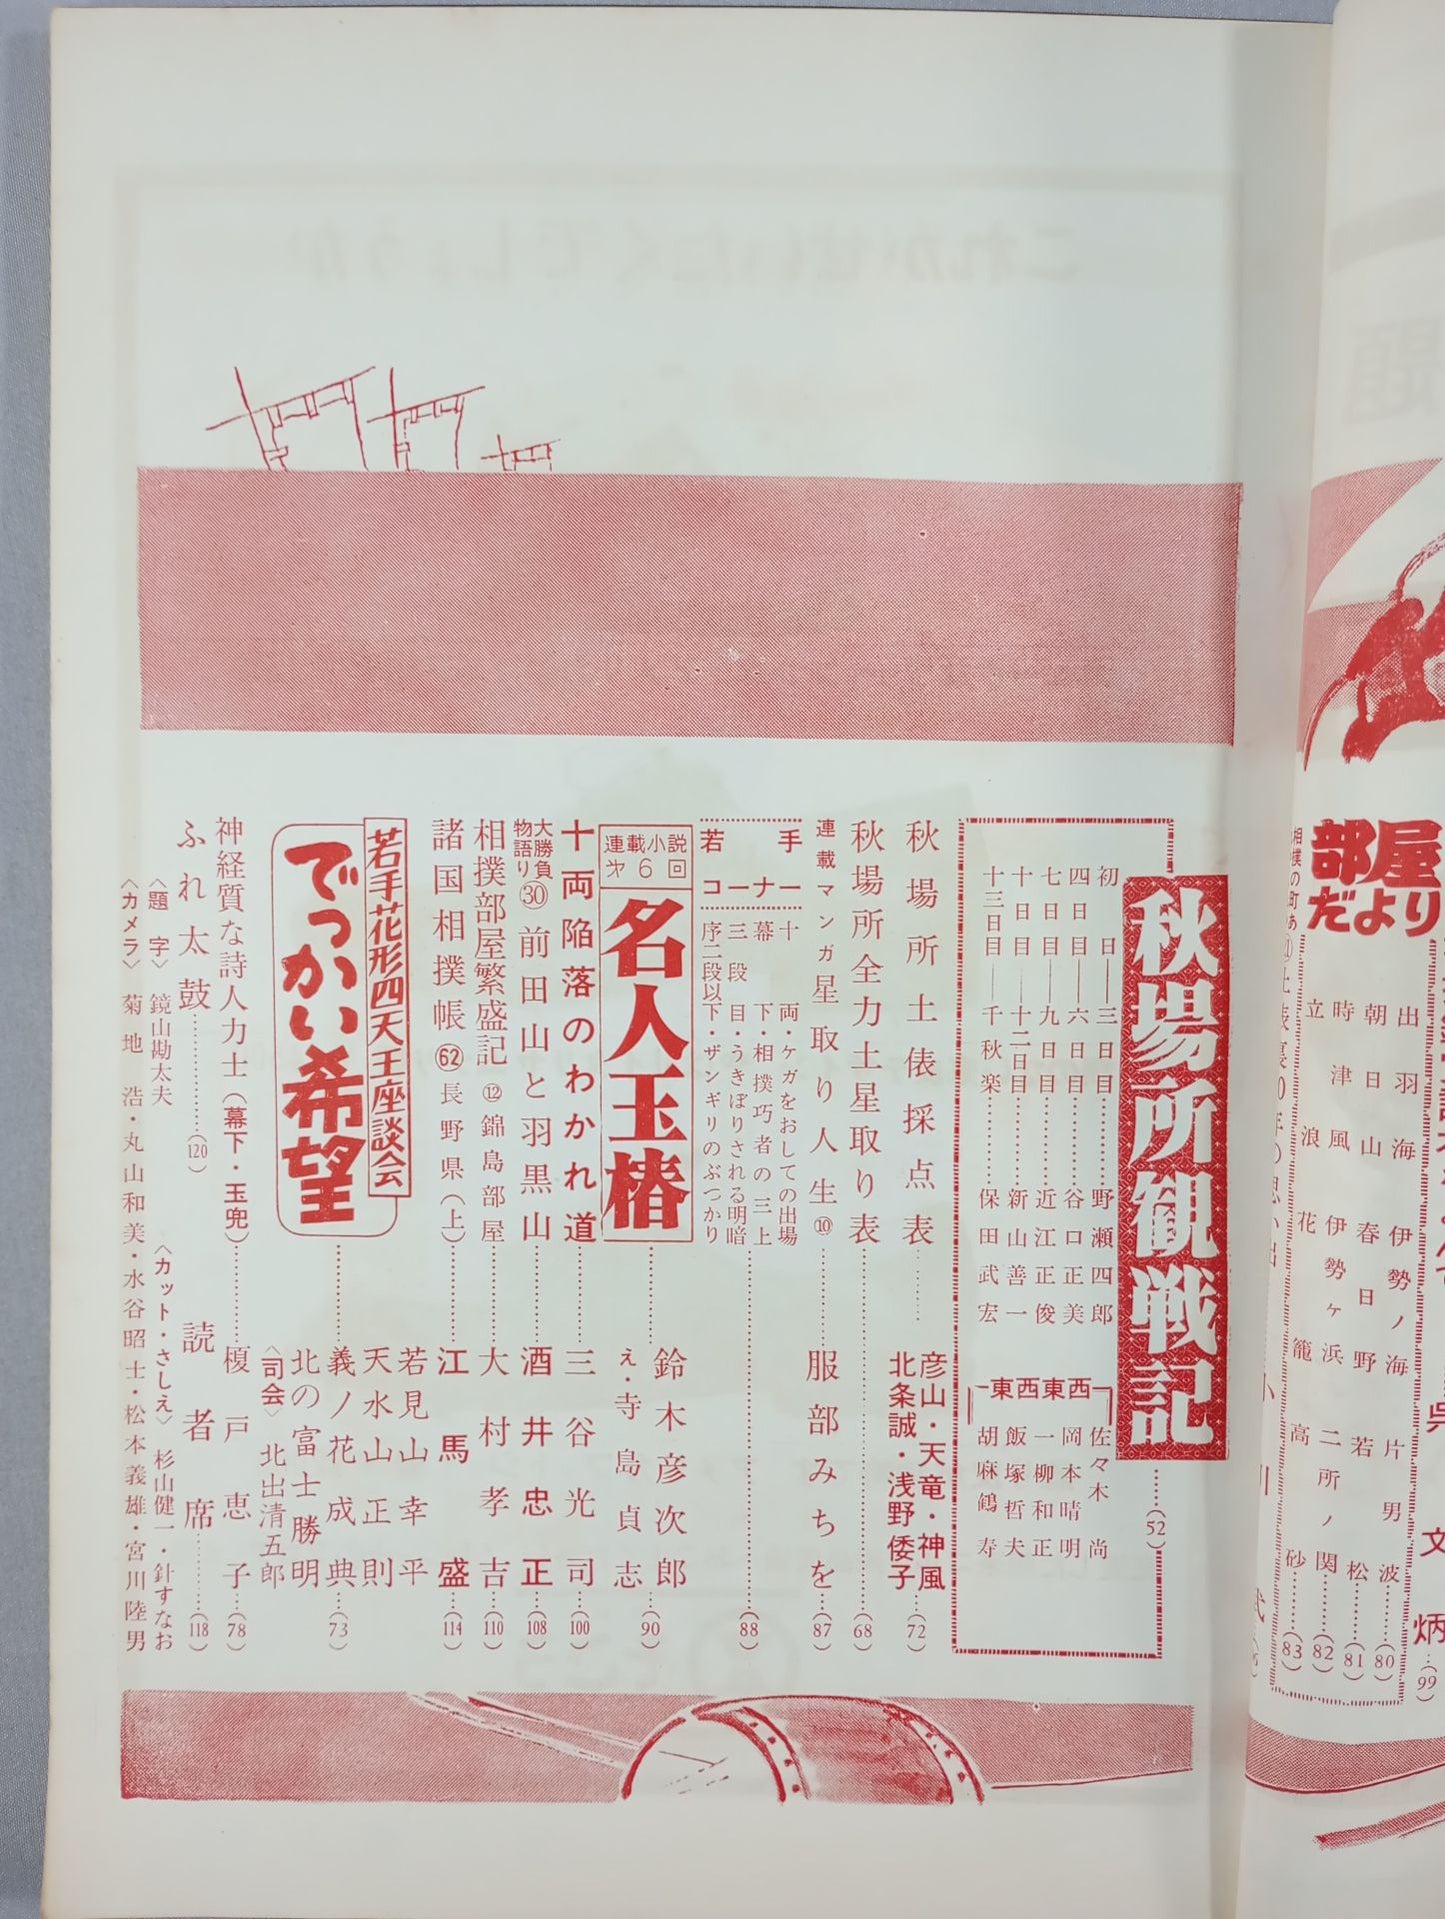 部屋だより
出羽海 伊勢ノ海 片男波……(80)
朝日山 春日野 若松……(81)
時津風 伊勢ヶ浜 二所ノ関……(82)
立浪 花籠 高砂……(83)
秋場所観戦記……(52)
初日――三日目……野瀬四郎
四日目――六日目……谷口正美
七日目――九日目……近江正俊
十日目――十二日目……新山善一
十三日目――千秋楽……保田武宏
東西東西
佐々木尚
岡本晴明
一柳和正
飯塚哲夫
胡麻鶴寿
秋場所土俵採点表……
彦山・天竜・神風
北条誠・浅野倭子……(72)
秋場所全力士星取り表……(68)
連載マンガ 星取り人生⑩……服部みちを……(87)
若手コーナー
十両・ケガをおしての出場
幕下・相撲巧者の三上
三段目・うきぼりされる明暗
序二段以下・ザンギリのぶつかり
……(88)
連載小説 第6回
名人玉椿……
鈴木彦次郎
え・寺島貞志……(90)
十両陥落のわかれ道……三谷光司……(100)
大勝負物語り㉚ 前田山と羽黒山……酒井忠正……(108)
相撲部屋繁盛記 ⑫錦島部屋……大村孝吉……(110)
諸国相撲帳 62 長野県(上)……江馬盛……(114)
若手花形四天王座談会
でっかい希望……
若見山幸平
天水山正則
義ノ花成典
北の富士勝明
〈司会〉北出清五郎
……(73)
神経質な詩人力士(幕下・玉兜)……榎戸恵子……(78)
ふれ太鼓……(120)
読者席……(118)
〈題字〉鏡山勘太夫 〈カット・さしえ〉杉山健一・針すなお
〈カメラ〉菊地浩・丸山和美・水谷昭士・松本義雄・宮川陸男